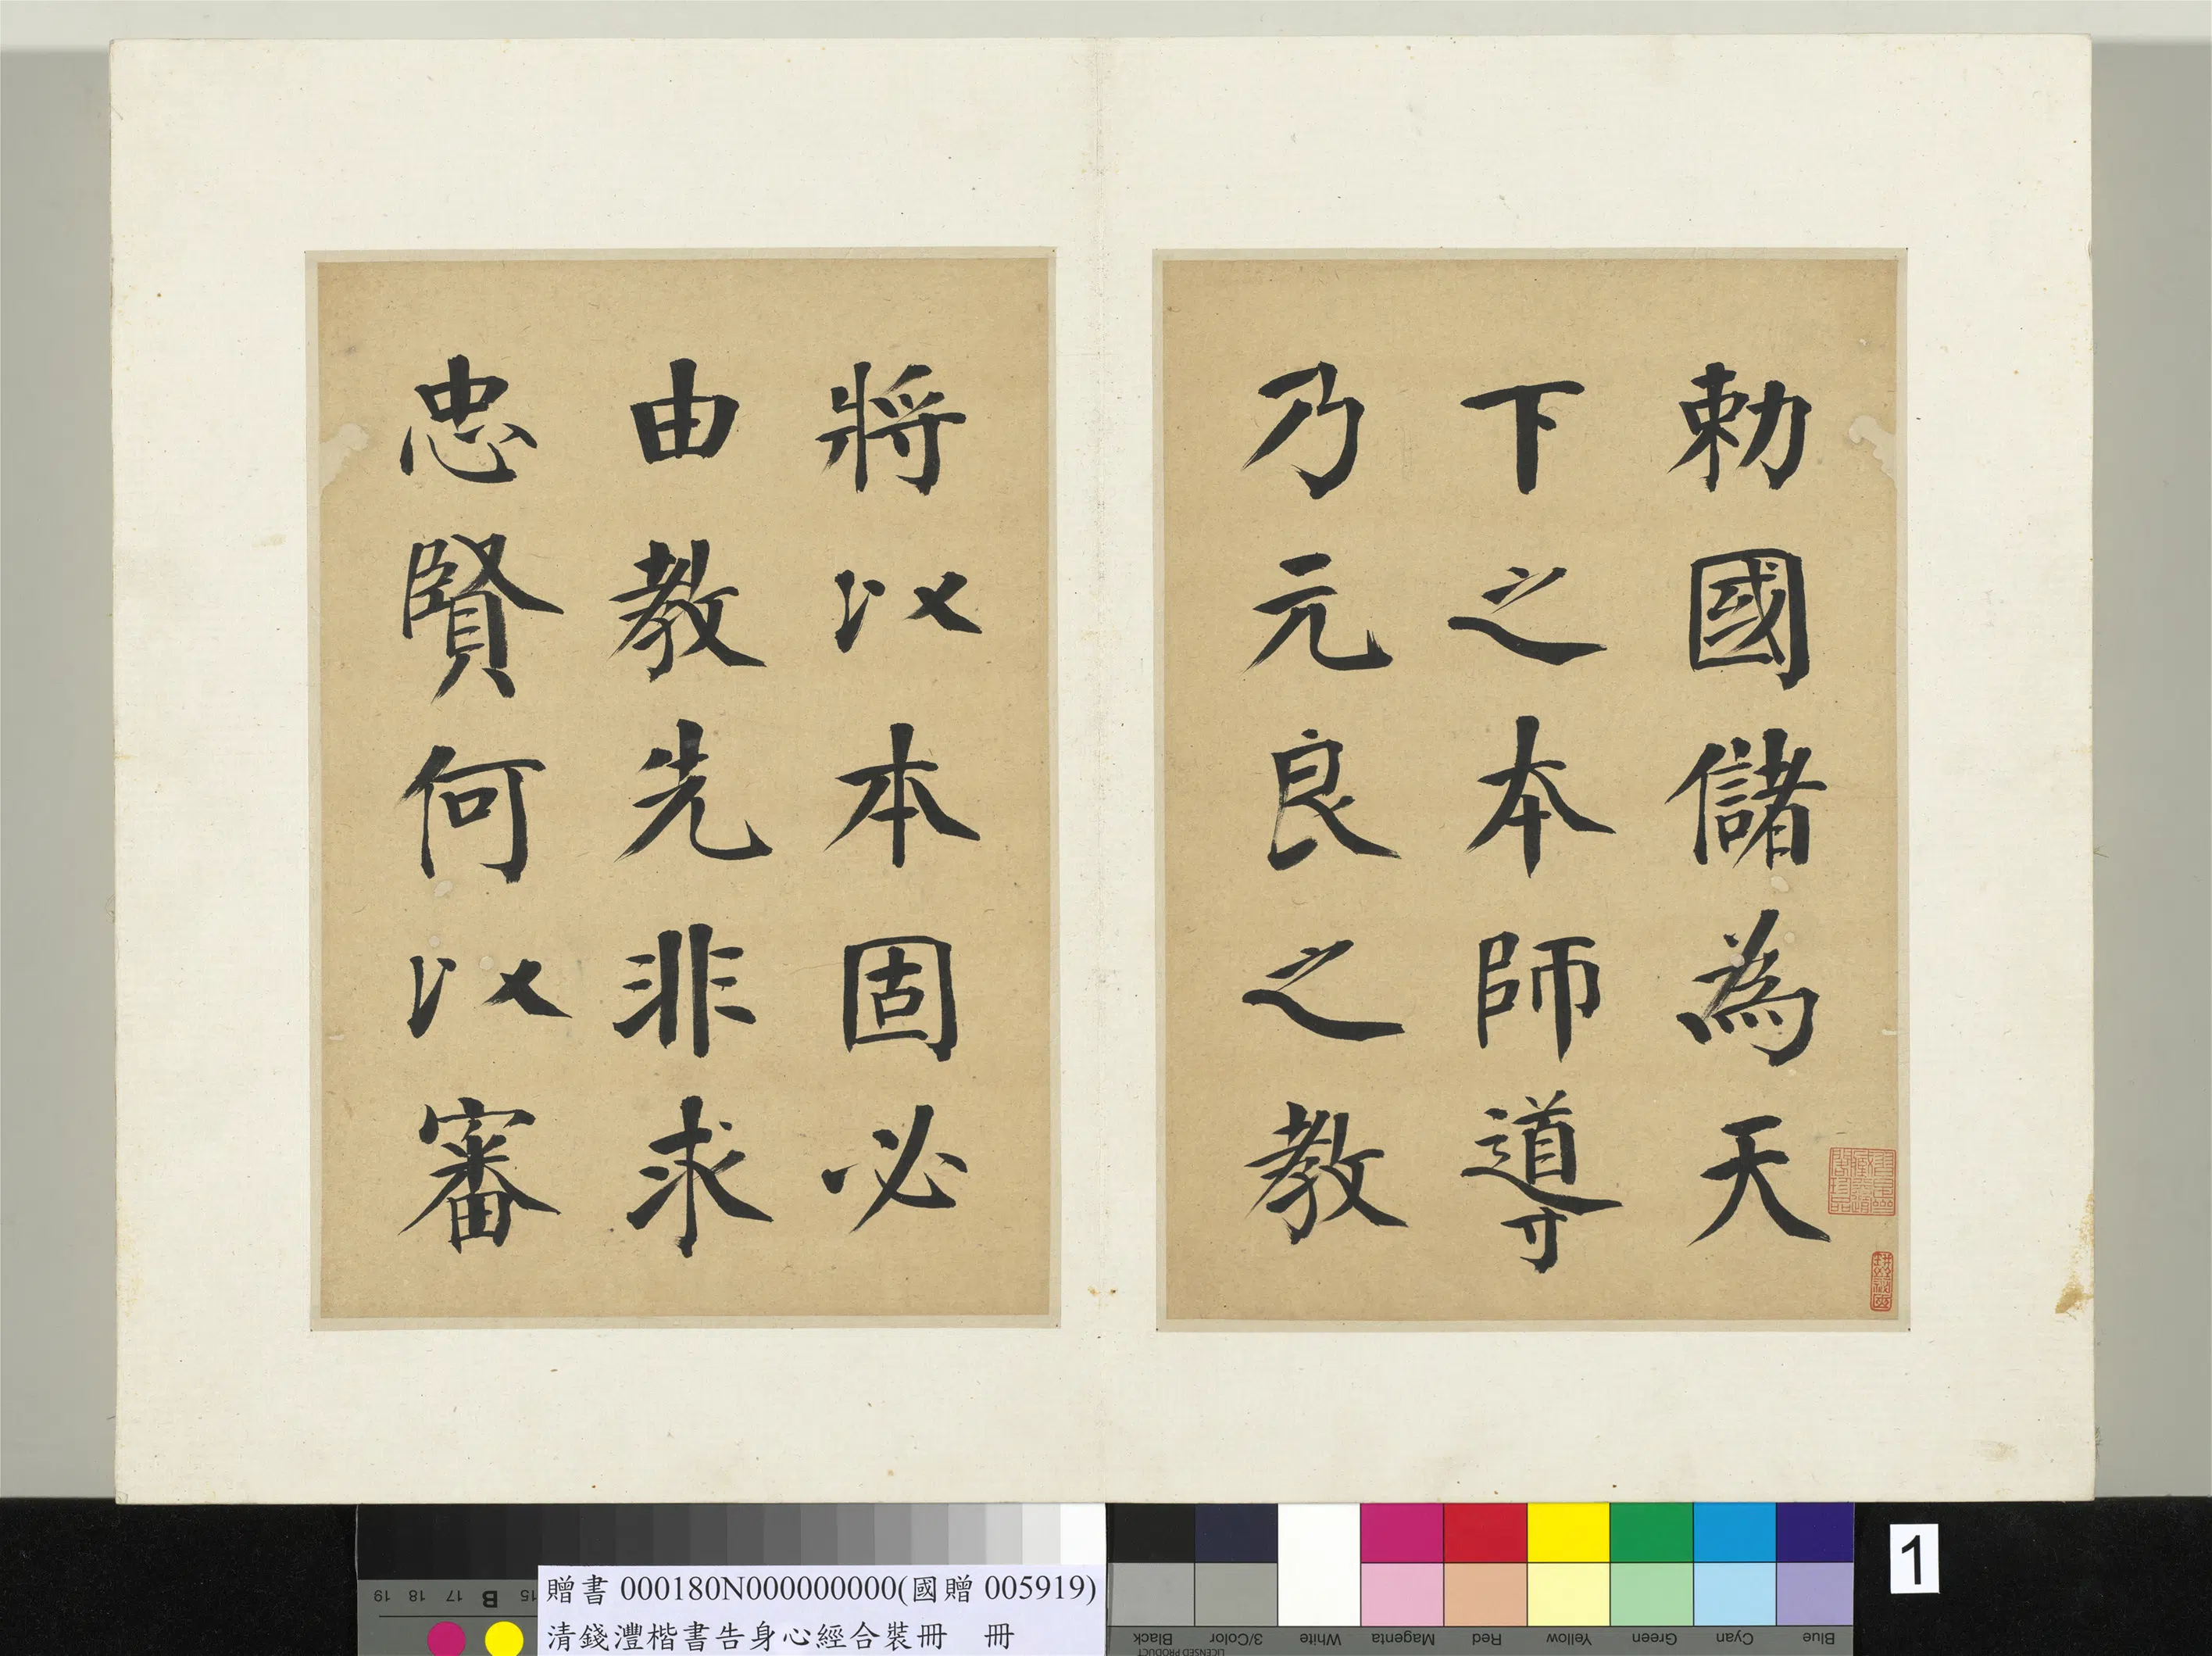 勅國儲為天
下之本師導
乃元良之教
將以本固必
由教先非求
忠賢何以審
贈書 000180N000000000(國贈 005919)
清錢灃楷書告身心經合裝冊 冊
19 18 17 B 15
Black 3/Color White Magenta Red Yellow Green Cyan Blue
LICENSED PRODUCT
1